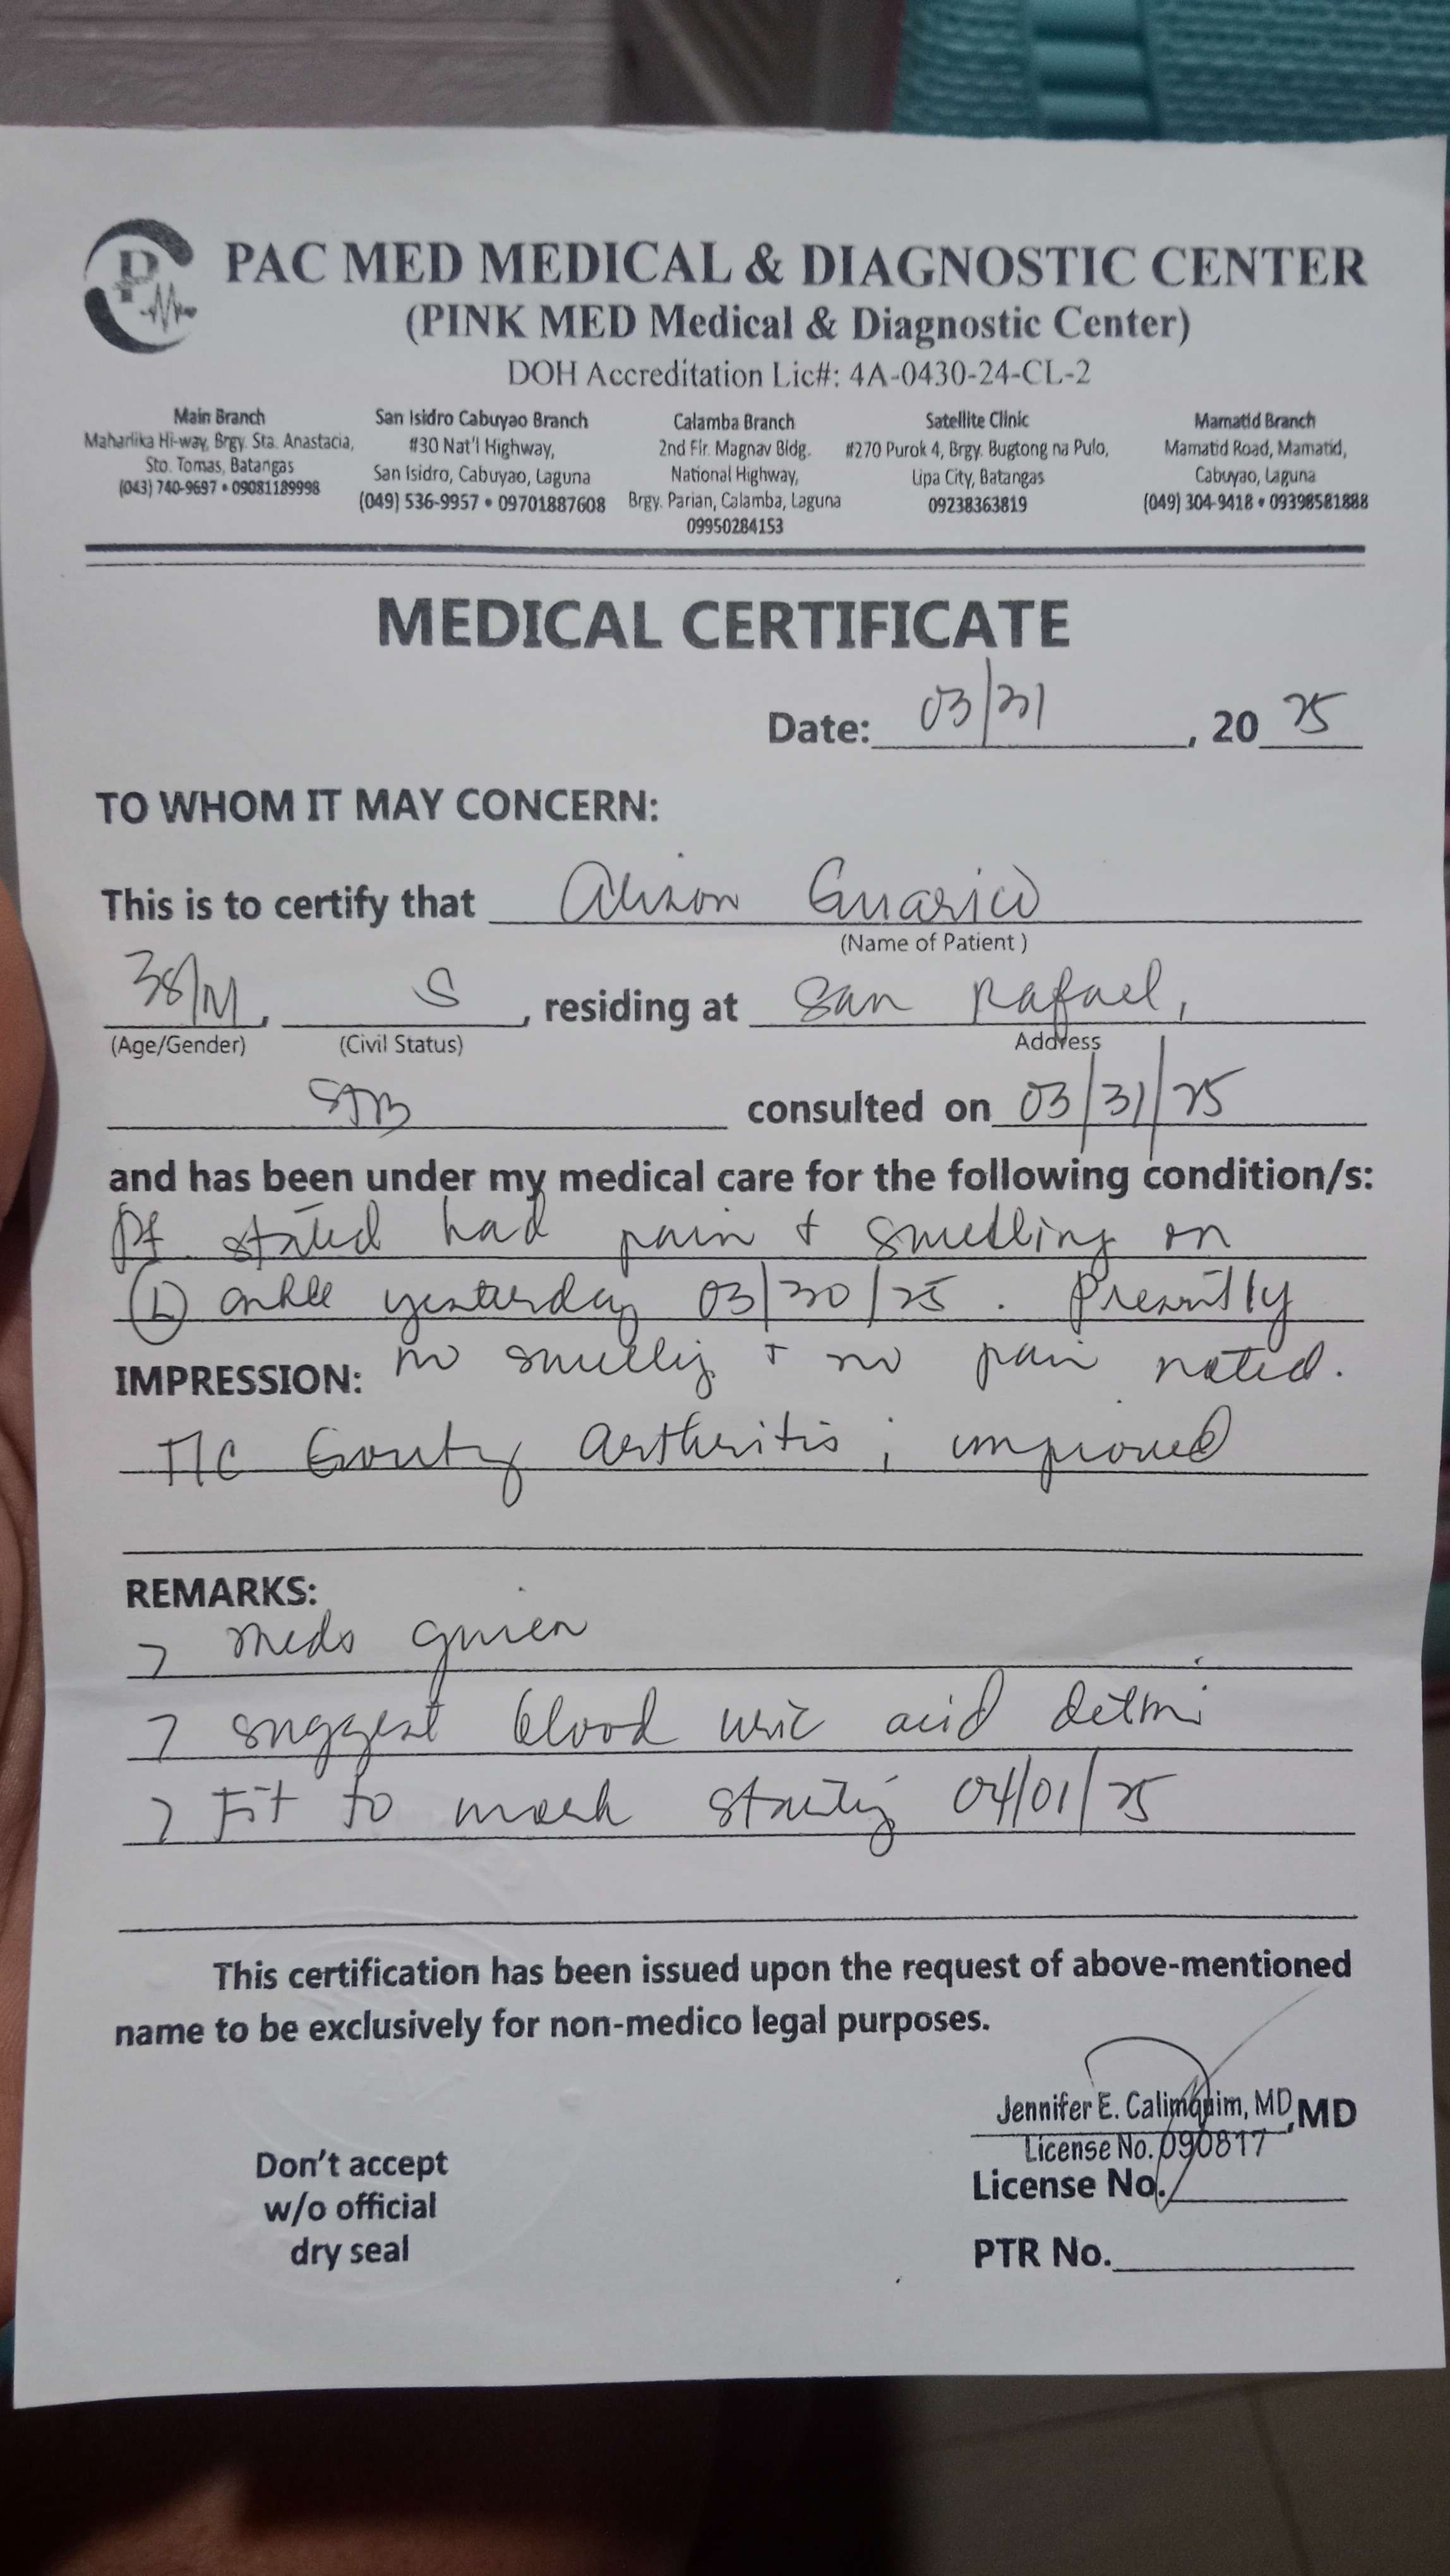 PAC MED MEDICAL & DIAGNOSTIC CENTER
(PINK MED Medical & Diagnostic Center)
DOH Accreditation Lic#: 4A-0430-24-CL-2
Main Branch
Maharlika Hi-way, Brgy. Sta. Anastacia,
Sto. Tomas, Batangas
(043) 740-9697 • 09081189998
San Isidro Cabuyao Branch
#30 Nat'l Highway,
San Isidro, Cabuyao, Laguna
(049) 536-9957 • 09701887608
Calamba Branch
2nd Flr. Magnav Bldg.
National Highway,
Brgy. Parian, Calamba, Laguna
09950284153
Satellite Clinic
#270 Purok 4, Brgy. Bugtong na Pulo,
Lipa City, Batangas
09238363819
Mamatid Branch
Mamatid Road, Mamatid,
Cabuyao, Laguna
(049) 304-9418 • 09398581888
MEDICAL CERTIFICATE
Date: 03/31, 20 25
TO WHOM IT MAY CONCERN:
This is to certify that Guarico
(Name of Patient )
38/M, S, residing at San Rafael,
(Age/Gender) (Civil Status) Address
STB consulted on 03/31/25
and has been under my medical care for the following condition/s:
Pt. stated had pain + swelling on
(L) ankle yesterday 03/30/25. Presently
IMPRESSION: no swelling + no pain noted.
T/C Gouty arthritis; improved
REMARKS:
> meds given
> suggest blood uric acid detmi
> Fit to work starting 04/01/25
This certification has been issued upon the request of above-mentioned
name to be exclusively for non-medico legal purposes.
Jennifer E. Calimquim, MD, MD
License No. 090817
License No.
PTR No.
Don't accept
w/o official
dry seal